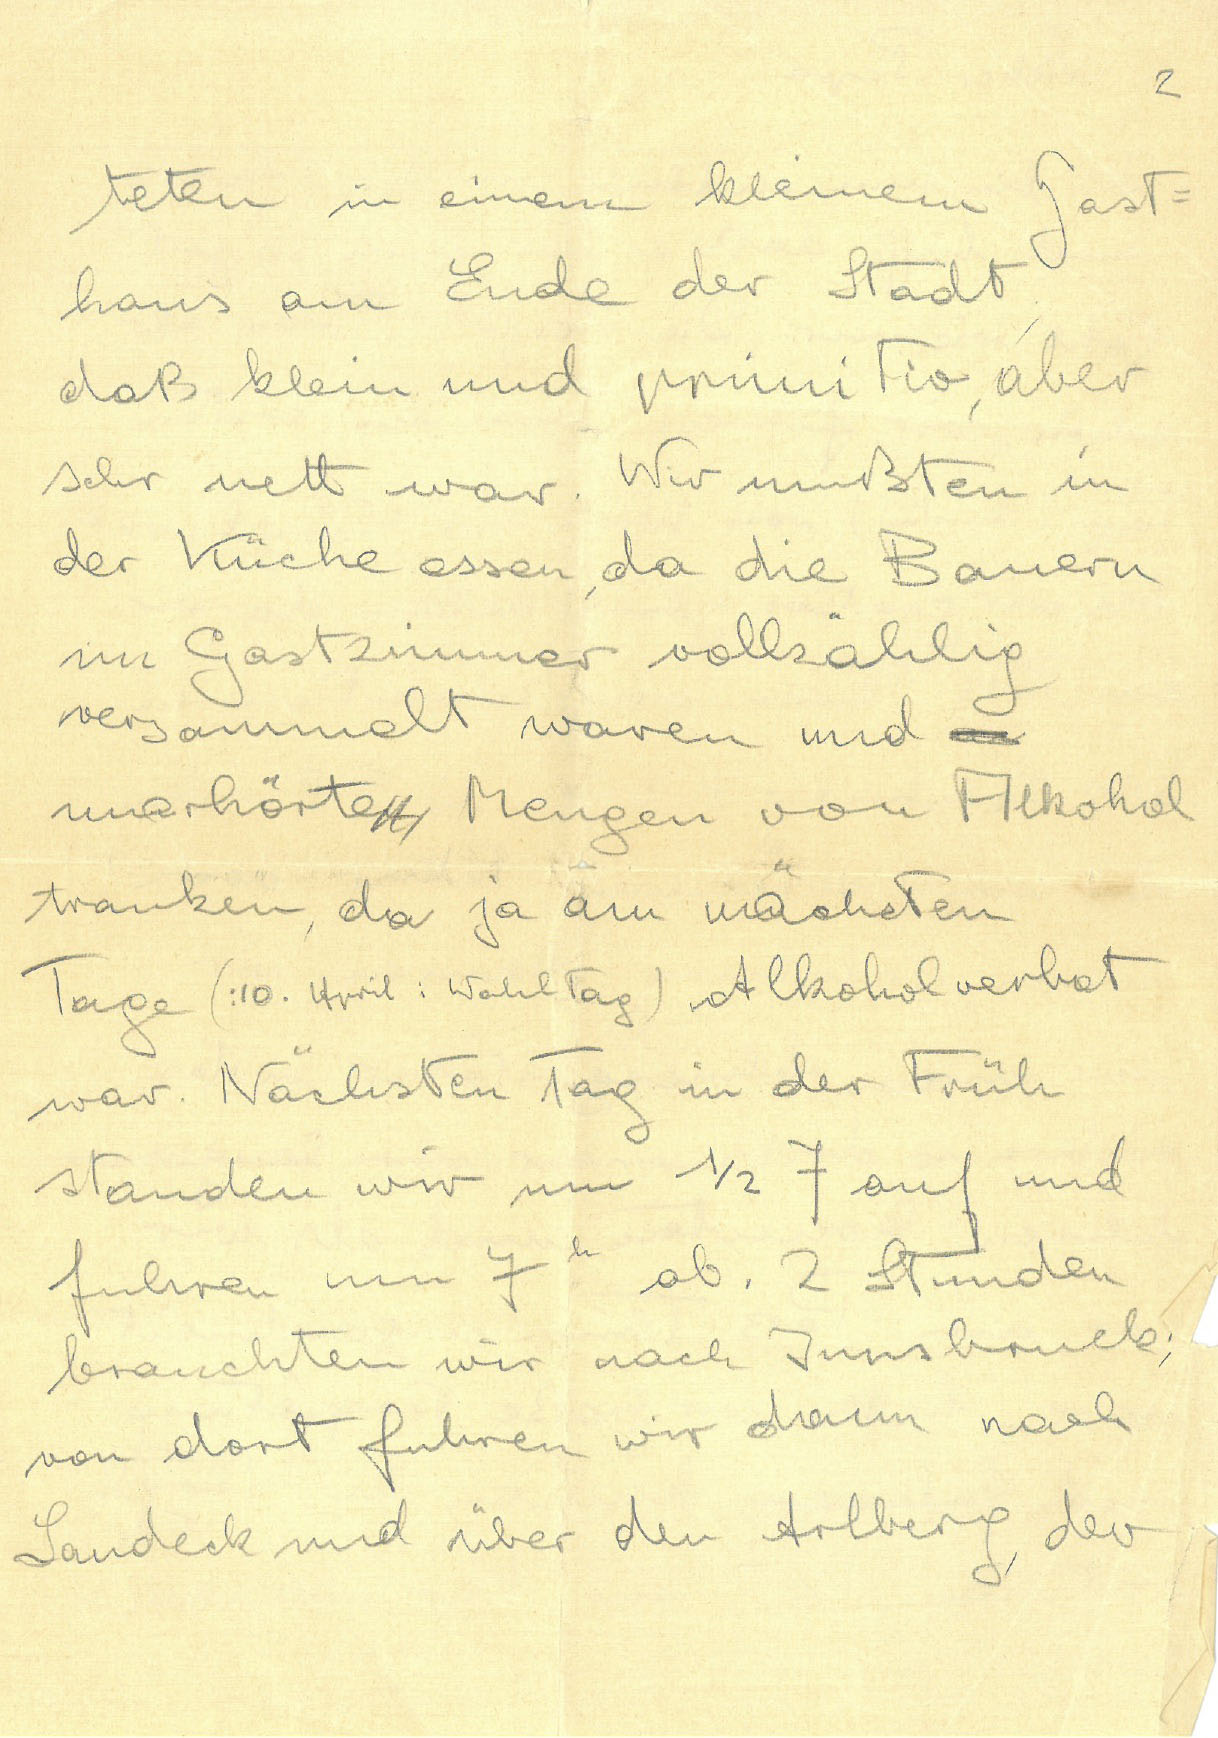 2
teten in einem kleinem Gast=
haus am Ende der Stadt,
daß klein und primitiv, aber
sehr nett war. Wir mußten in
der Küche essen, da die Bauern
im Gastzimmer vollzählig
versammelt waren und
unerhörte Mengen von Alkohol
tranken, da ja am nächsten
Tage (:10. April : Wahltag) Alkoholverbot
war. Nächsten Tag in der Früh
standen wir um 1/2 7 auf und
fuhren um 7h ab. 2 Stunden
brauchten wir nach Innsbruck;
von dort fuhren wir dann nach
Landeck und über den Arlberg, der